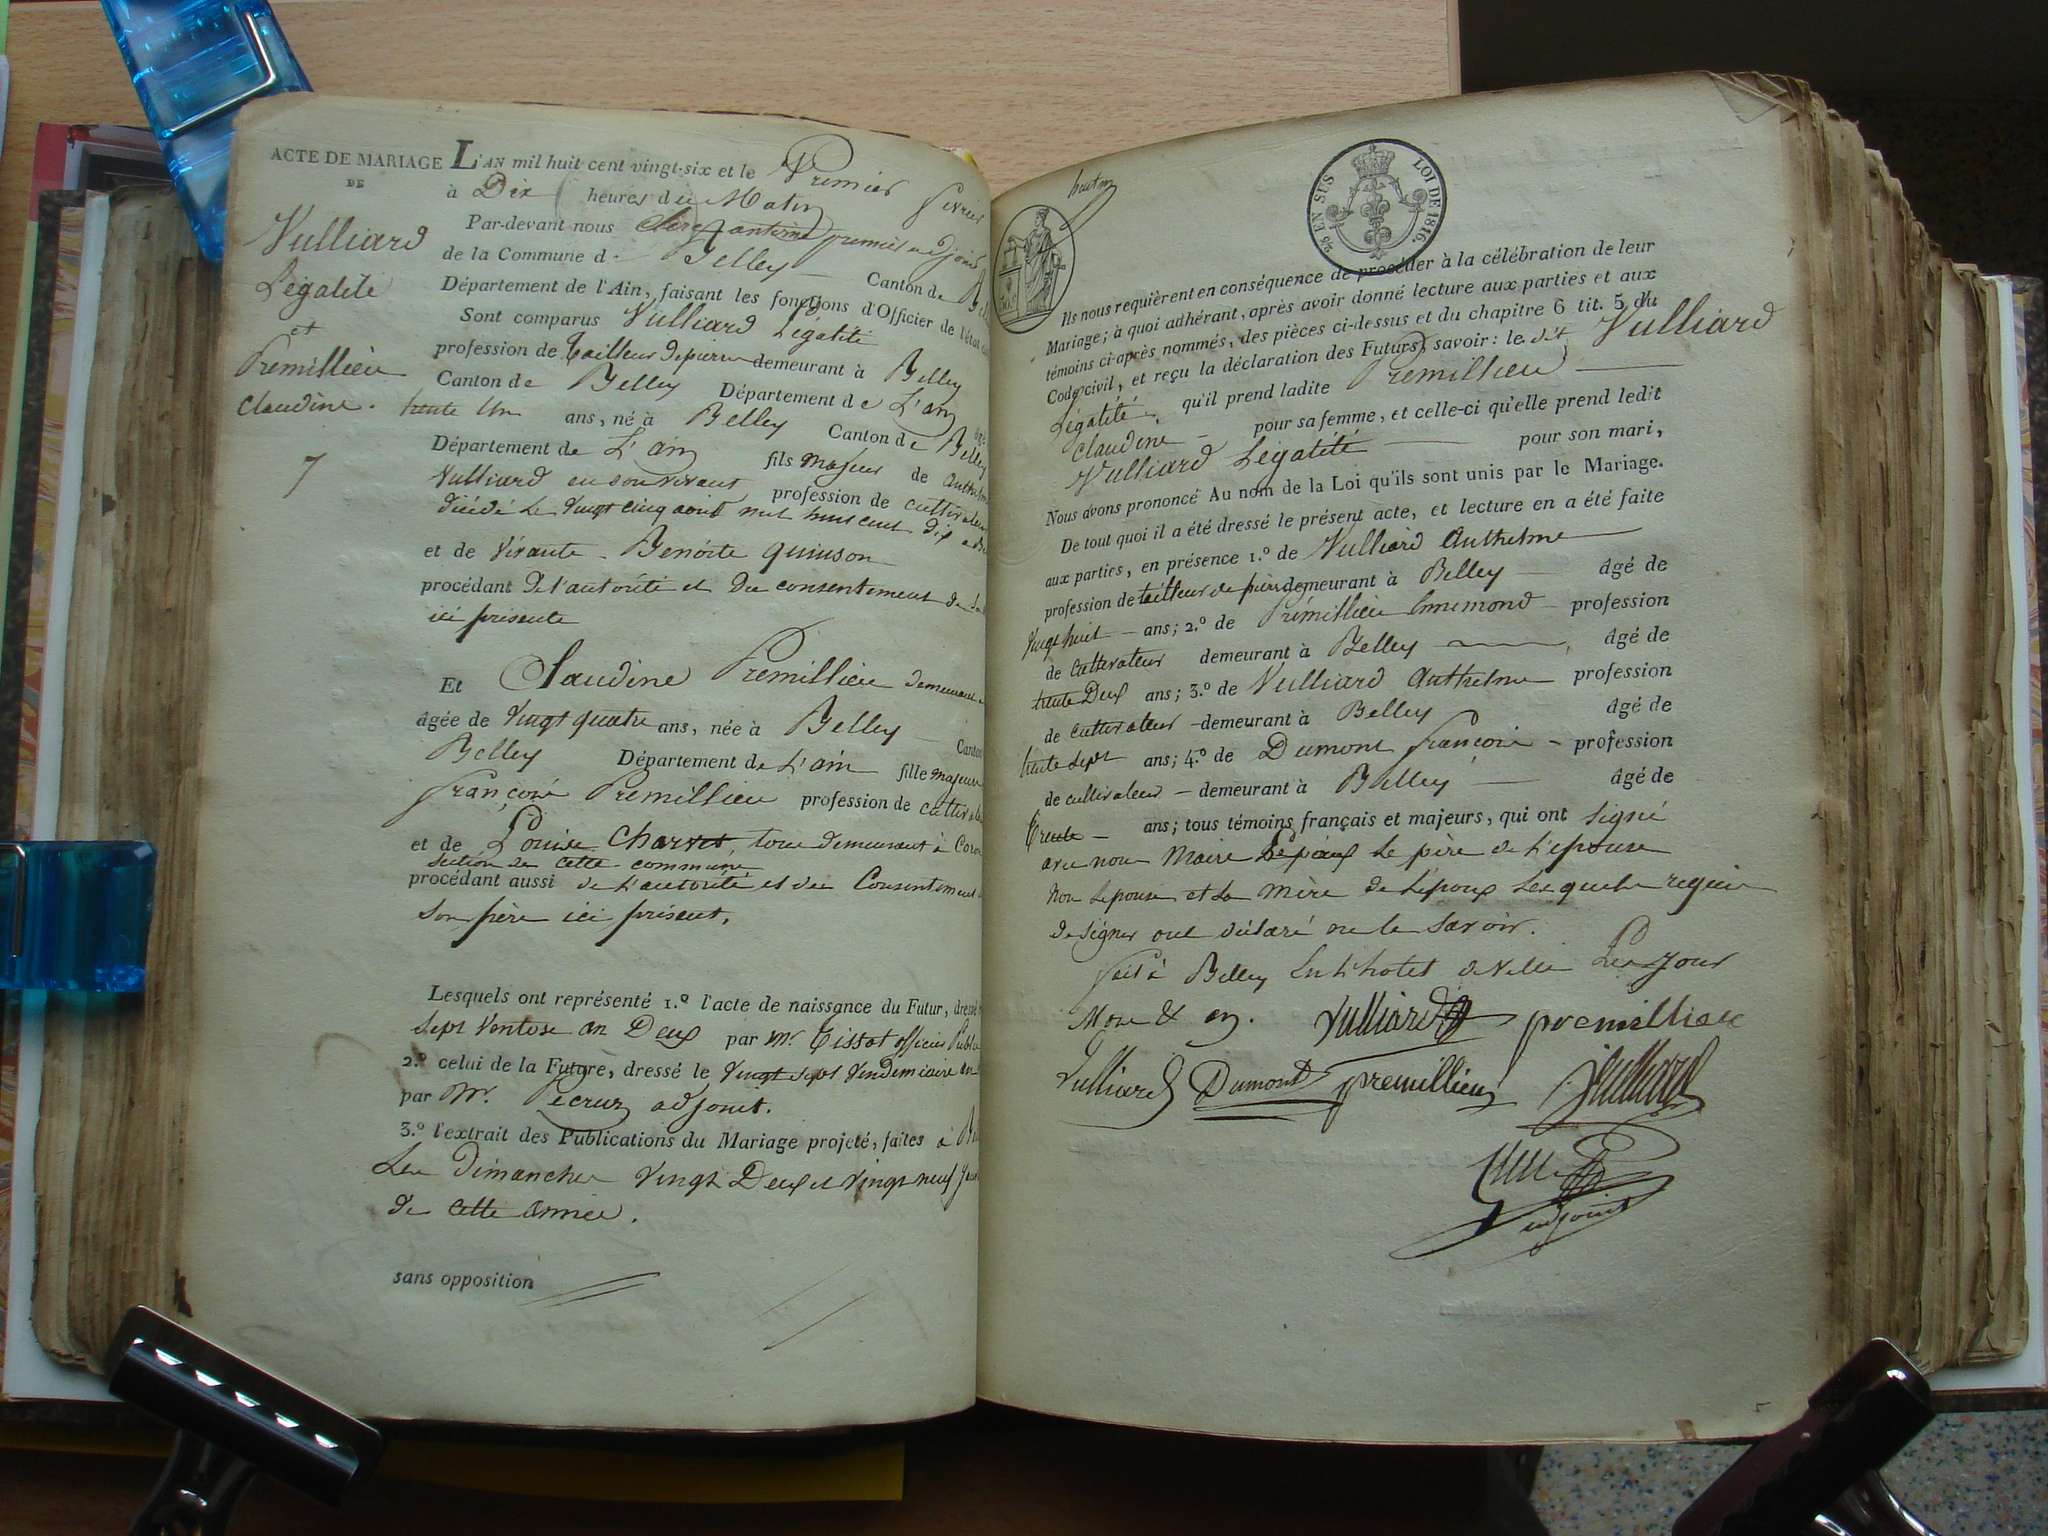 ACTE DE MARIAGE
DE
Vulliard
Légalité
et
Premillieu
Claudine.
7
L'AN mil huit cent vingt-six et le Premier février
à Dix heures du Matin
Par-devant nous antoine premier adjoint
de la Commune d. Belley Canton de
Département de l'Ain, faisant les fonctions d'Officier de l'état
Sont comparus Vulliard Légalité
profession de tailleur de pierre demeurant à Belley
Canton de Belley Département de L'ain âgé
trente un ans, né à Belley Canton de Belley
Département de L'ain fils majeur de anthelme
Vulliard en son vivant profession de cultivateur
décédé le vingt cinq août mil huit cent dix
et de vivante Benoite quinson
procédant de l'autorité et du consentement de
ici présente
Et Claudine Premillieu demeurant
âgée de vingt quatre ans, née à Belley Canton
Belley Département de L'ain fille majeure
françois Premillieu profession de cultivateur
et de Louise Charvet, tous demeurant à
section de cette commune
procédant aussi de l'autorité et du Consentement
son père ici présent.
Lesquels ont représenté 1.º l'acte de naissance du Futur, dressé
sept Ventose an Deux par Mr. Tissot officier Public
2.º celui de la Future, dressé le vingt sept vendemiaire an
par Mr. Pecruz adjoint.
3.º l'extrait des Publications du Mariage projeté, faites à
Les Dimanches vingt Deux et vingt neuf
de cette année.
sans opposition
huit
25 EN SUS
LOI DE 1816.
Ils nous requièrent en conséquence de procéder à la célébration de leur
Mariage; à quoi adhérant, après avoir donné lecture aux parties et aux
témoins ci-après nommés, des pièces ci-dessus et du chapitre 6 tit. 5 du
Code civil, et reçu la déclaration des Futurs, savoir: le dit Vulliard
Légalité, qu'il prend ladite Premillieu
Claudine pour sa femme, et celle-ci qu'elle prend ledit
Vulliard Légalité pour son mari,
Nous avons prononcé Au nom de la Loi qu'ils sont unis par le Mariage.
De tout quoi il a été dressé le présent acte, et lecture en a été faite
aux parties, en présence 1.º de Vulliard Anthelme
profession de tailleur de pierre demeurant à Belley âgé de
vingt huit ans; 2.º de Prémillieu Ennemond profession
de cultivateur demeurant à Belley, âgé de
trente Deux ans; 3.º de Vulliard Anthelme profession
de cultivateur demeurant à Belley âgé de
trente sept ans; 4.º de Dumont françois profession
de cultivateur demeurant à Belley âgé de
trente ans; tous témoins français et majeurs, qui ont signé
avec nous Maire L'époux Le père de l'épouse
non l'épouse et la mère de l'époux Lesquelles requises
de signer ont déclaré ne le savoir.
fait à Belley En l'hotel de ville Les jour
Mois & an. Vulliard premillieu
Vulliard Dumont premillieu Vulliard
adjoint